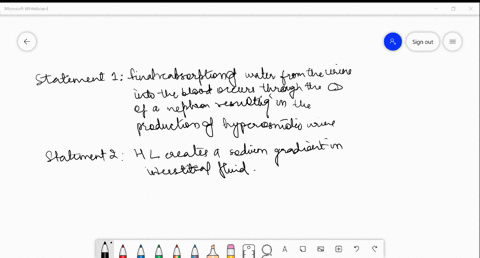 Microsoft Whiteboard
Sign out
Statement 1: final reabsorption of water from the urine
into the blood occurs through the CD
of a nephron resulting in the
production of hyperosmotic urine
Statement 2: HL creates a sodium gradient in
interstitial fluid.